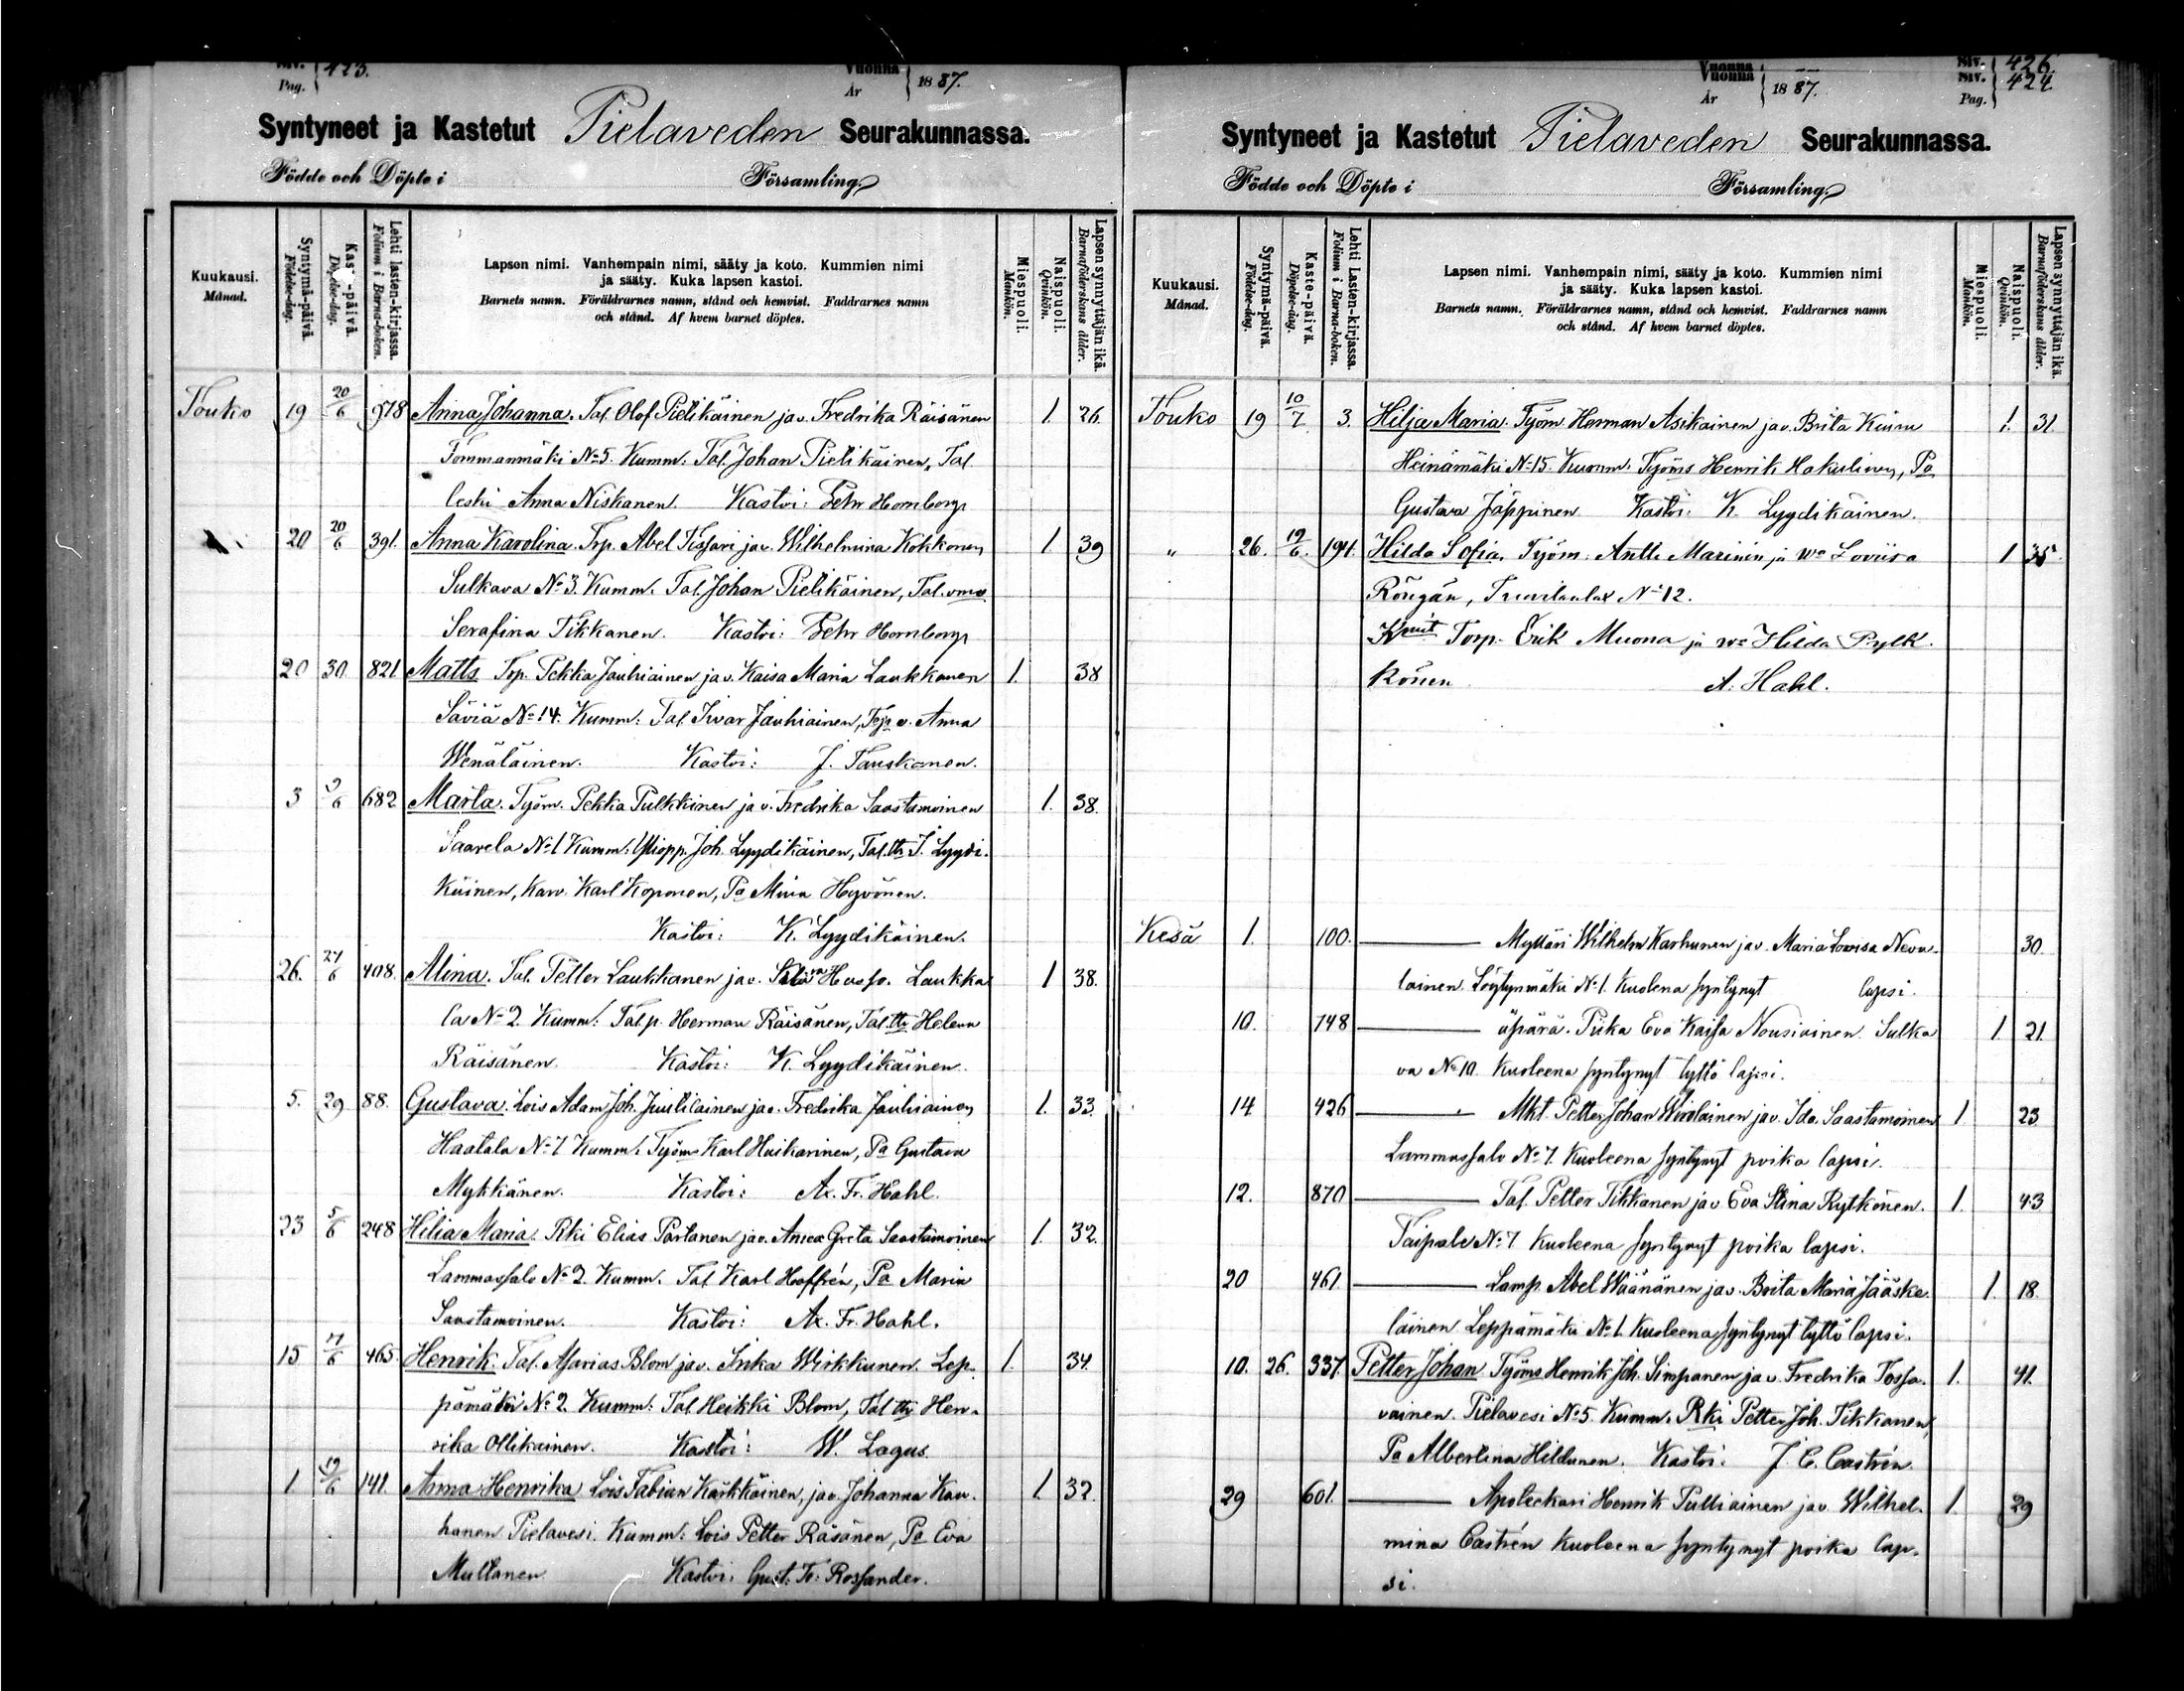 Siv. 423.
Pag.
Vuonna
År 1887.
Syntyneet ja Kastetut Pielaveden Seurakunnassa.
Födde och Döpte i Församling.
Kuukausi.
Månad.
Syntymä-päivä.
Födelse-dag.
Kas -päivä.
Döpelse-dag.
Lehti lasten-kirjassa.
Folium i Barna-boken.
Lapsen nimi. Vanhempain nimi, sääty ja koto. Kummien nimi
ja sääty. Kuka lapsen kastoi.
Barnets namn. Föräldrarnes namn, stånd och hemvist. Faddrarnes namn
och stånd. Af hvem barnet döptes.
Miespuoli.
Mankön.
Naispuoli.
Qvinkön.
Lapsen synnyttäjän ikä.
Barnaföderskans ålder.
Touko 19 20/6 978 Anna Johanna. Tal. Olof Pielikäinen ja v. Fredrika Räisänen 1. 26.
Tommanmäki No 5. Kumm: Tal. Johan Pielikäinen, Tal.
leski Anna Niskanen. Kastoi: Pehr Hornborg
20 20/6 391. Anna Karolina. Trp. Abel Tissari ja v. Wilhelmina Kokkonen 1. 39
Sulkava No 3. Kumm. Tal. Johan Pielikäinen, Tal. vmo
Serafina Tikkanen. Kastoi: Pehr Hornborg
20 30. 821 Matts Trp. Pekka Jauhiainen ja v. Kaisa Maria Laukkanen 1. 38
Säviä No 14. Kumm: Tal. Iivar Jauhiainen, Trp v. Anna
Wenäläinen. Kastoi: J. Tauskanen.
3 /6 682 Marta. Työm. Pekka Pulkkinen ja v. Fredrika Saastamoinen 1. 38.
Saarela No 1 Kumm: Yliopp. Joh. Lyydikäinen, Tal. th I. Lyydi-
käinen, Karv. Karl Koponen, Pa Mina Hyvönen.
Kastoi: K. Lyydikäinen.
26. 27/6 408. Alina. Tal. Petter Laukkanen ja v. Husso. Laukka
1 38.
la No 2. Kumm: Talp. Herman Räisänen, Tal. th Helena
Räisänen. Kastoi: K. Lyydikäinen.
5. 29 88. Gustava. Lois Adam Joh. Juutilainen ja v. Fredrika Jauhiainen 1. 33.
Haatala No 7 Kumm. Työms Karl Huikarinen, Pa Gustava
Mykkänen. Kastoi: Ax. Fr. Hahl.
23 5/6 248 Hilia Maria. Rki Elias Partanen ja v. Anna Greta Saastamoinen 1. 32.
Lammassalo No 2. Kumm. Tal Karl Hoffrén, Pa Maria
Saastamoinen. Kastoi: Ax. Fr. Hahl.
15 /6 465. Henrik. Tal. Asarias Blom ja v. Inka Wirkkunen. Lep- 1. 34.
pämäki No 2. Kumm: Tal. Heikki Blom, Tal th Hen-
rika Ollikainen. Kastoi: W. Lagus.
1 19/6 141. Anna Henrika Lois Fabian Kärkkäinen, ja v. Johanna Kau- 1. 32.
hanen Pielavesi. Kumm: Lois Petter Räsänen, Pa Eva
Multanen Kastoi: Gust. Fr. Rossander.
Siv. 426.
Siv. 424
Pag.
Vuonna
Vuonna
År 1887.
Syntyneet ja Kastetut Pielaveden Seurakunnassa.
Födde och Döpte i Församling.
Kuukausi.
Månad.
Syntymä-päivä.
Födelse-dag.
Kaste-päivä.
Döpelse-dag.
Lehti Lasten-kirjassa.
Folium i Barna-boken.
Lapsen nimi. Vanhempain nimi, sääty ja koto. Kummien nimi
ja sääty. Kuka lapsen kastoi.
Barnets namn. Föräldrarnes namn, stånd och hemvist. Faddrarnes namn
och stånd. Af hvem barnet döptes.
Miespuoli.
Mankön.
Naispuoli.
Qvinkön.
Lapsen synnyttäjän ikä.
Barnaföderskans ålder.
Touko 19 10/7 3. Hilja Maria. Työm. Herman Asikainen ja v. Brita 1. 31
Heinämäki No 15. Kumm. Työms Henrik Hakulinen, Pa
Gustava Jäppinen Kastoi: K. Lyydikäinen.
" 26. 19/6. 1911. Hilda Sofia. Työm. Antti Marinin ja wo Loviisa 1 35
No 12.
Torp. Erik Muona ja wo Hilda Rytk-
könen A. Hahl.
Kesä 1. 100. Mylläri Wilhelm Karhunen ja v. Maria Lovisa Neva- 30.
lainen. Löytynmäki No 1. Kuolena syntynyt lapsi.
10. 748 äpärä. Piika Eva Kaisa Nousiainen Sulka 1 21.
va No 10. Kuoleena syntynyt tyttö lapsi.
14. 426 Mkt. Petter Johan Wirolainen ja v. Ida Saastamoinen 1. 23.
Lammassalo No 7. Kuoleena syntynyt poika lapsi.
12. 870 Tal. Petter Tikkanen ja v Eva Stina Rytkönen. 1. 43
Taipale No 7 Kuoleena syntynyt poika lapsi.
20 461. Lamp. Abel Wäänänen ja v. Brita Maria Jääske- 1. 18.
läinen Leppämäki No 1. Kuoleena syntynyt tyttö lapsi.
10. 26. 337. Petter Johan Työms Henrik Joh. Simpanen ja v. Fredrika Tossa- 1. 41.
vainen. Pielavesi No 5. Kumm. Rki Petter Joh. Tikkanen,
Pa Albertina Hildunen. Kastoi: J. C. Castrén.
29 601. Apoteekari Henrik Pulliainen ja v. Wilhel- 1. 29
mina Castrén Kuoleena syntynyt poika lap-
si.